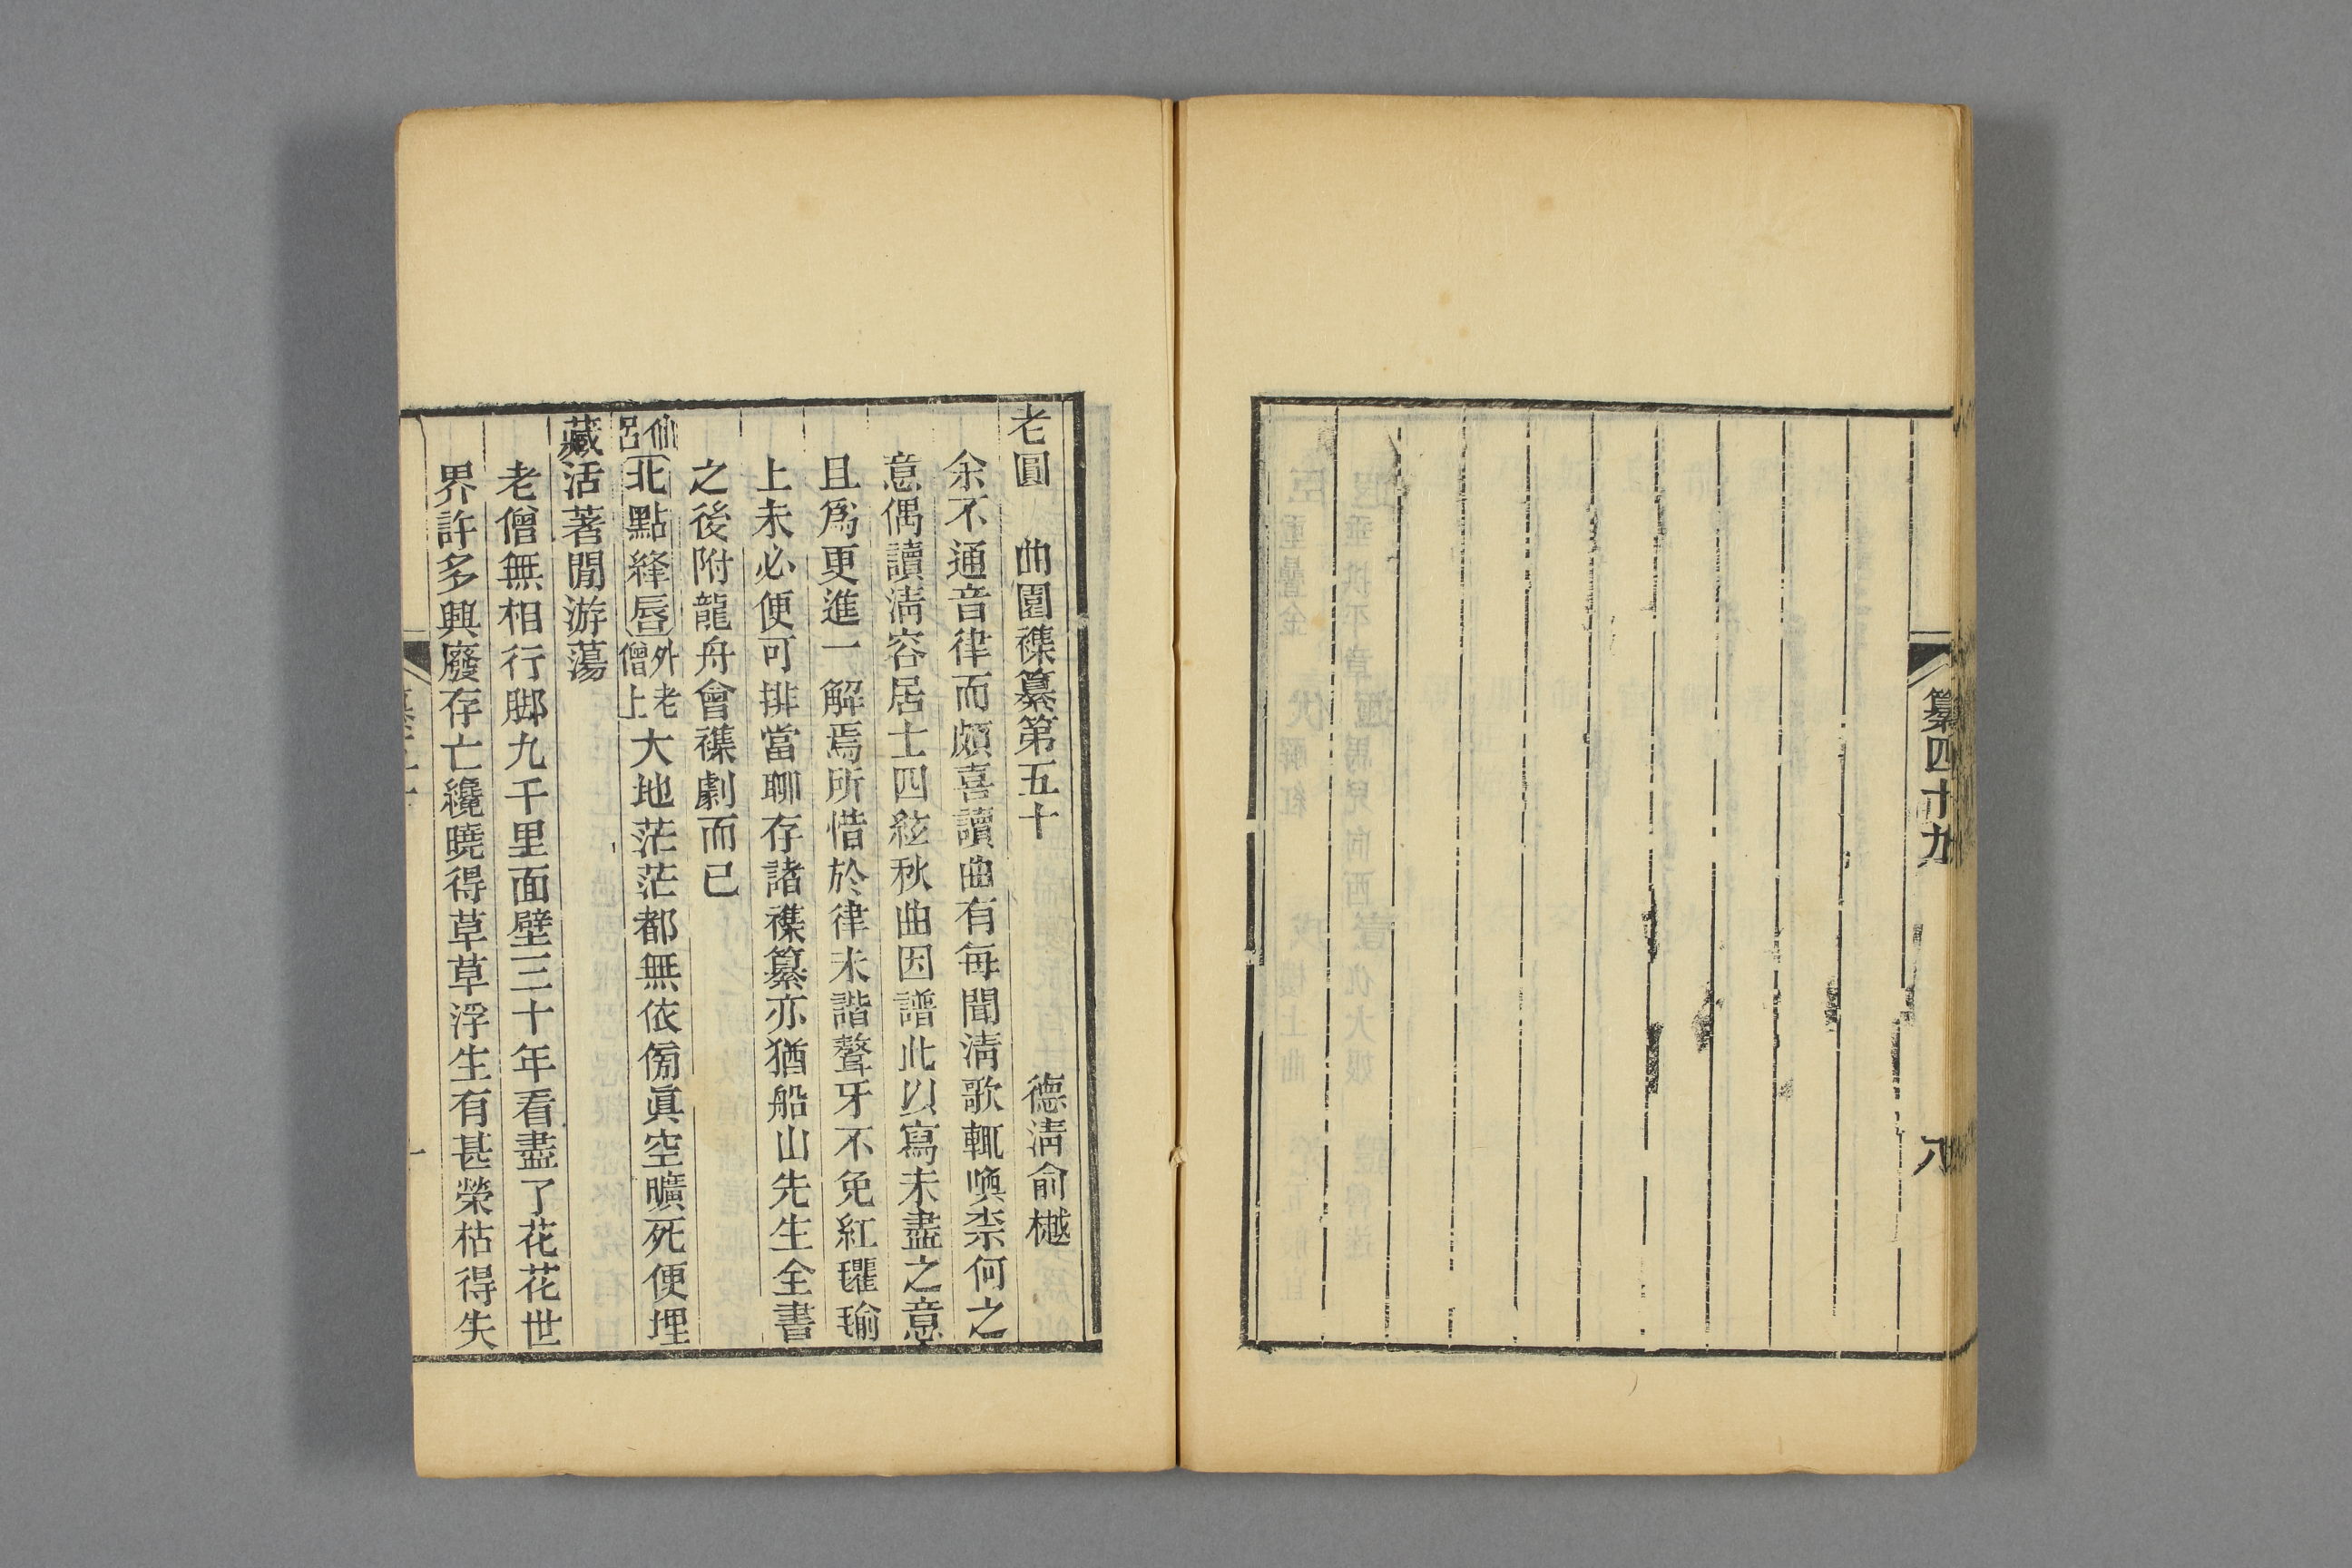 纂四十九
八
老圓　曲園襍纂第五十　德淸俞樾
余不通音律而頗喜讀曲有每聞淸歌輒喚柰何之
意偶讀淸容居士四絃秋曲因譜此以寫未盡之意
且爲更進一解焉所惜於律未諧聱牙不免紅瓘瑜
上未必便可排當聊存諸襍纂亦猶船山先生全書
之後附龍舟會襍劇而已
仙呂北點絳唇外老僧上大地茫茫都無依傍眞空曠死便埋
藏活著閒游蕩
老僧無相行脚九千里面壁三十年看盡了花花世
界許多興廢存亡纔曉得草草浮生有甚榮枯得失